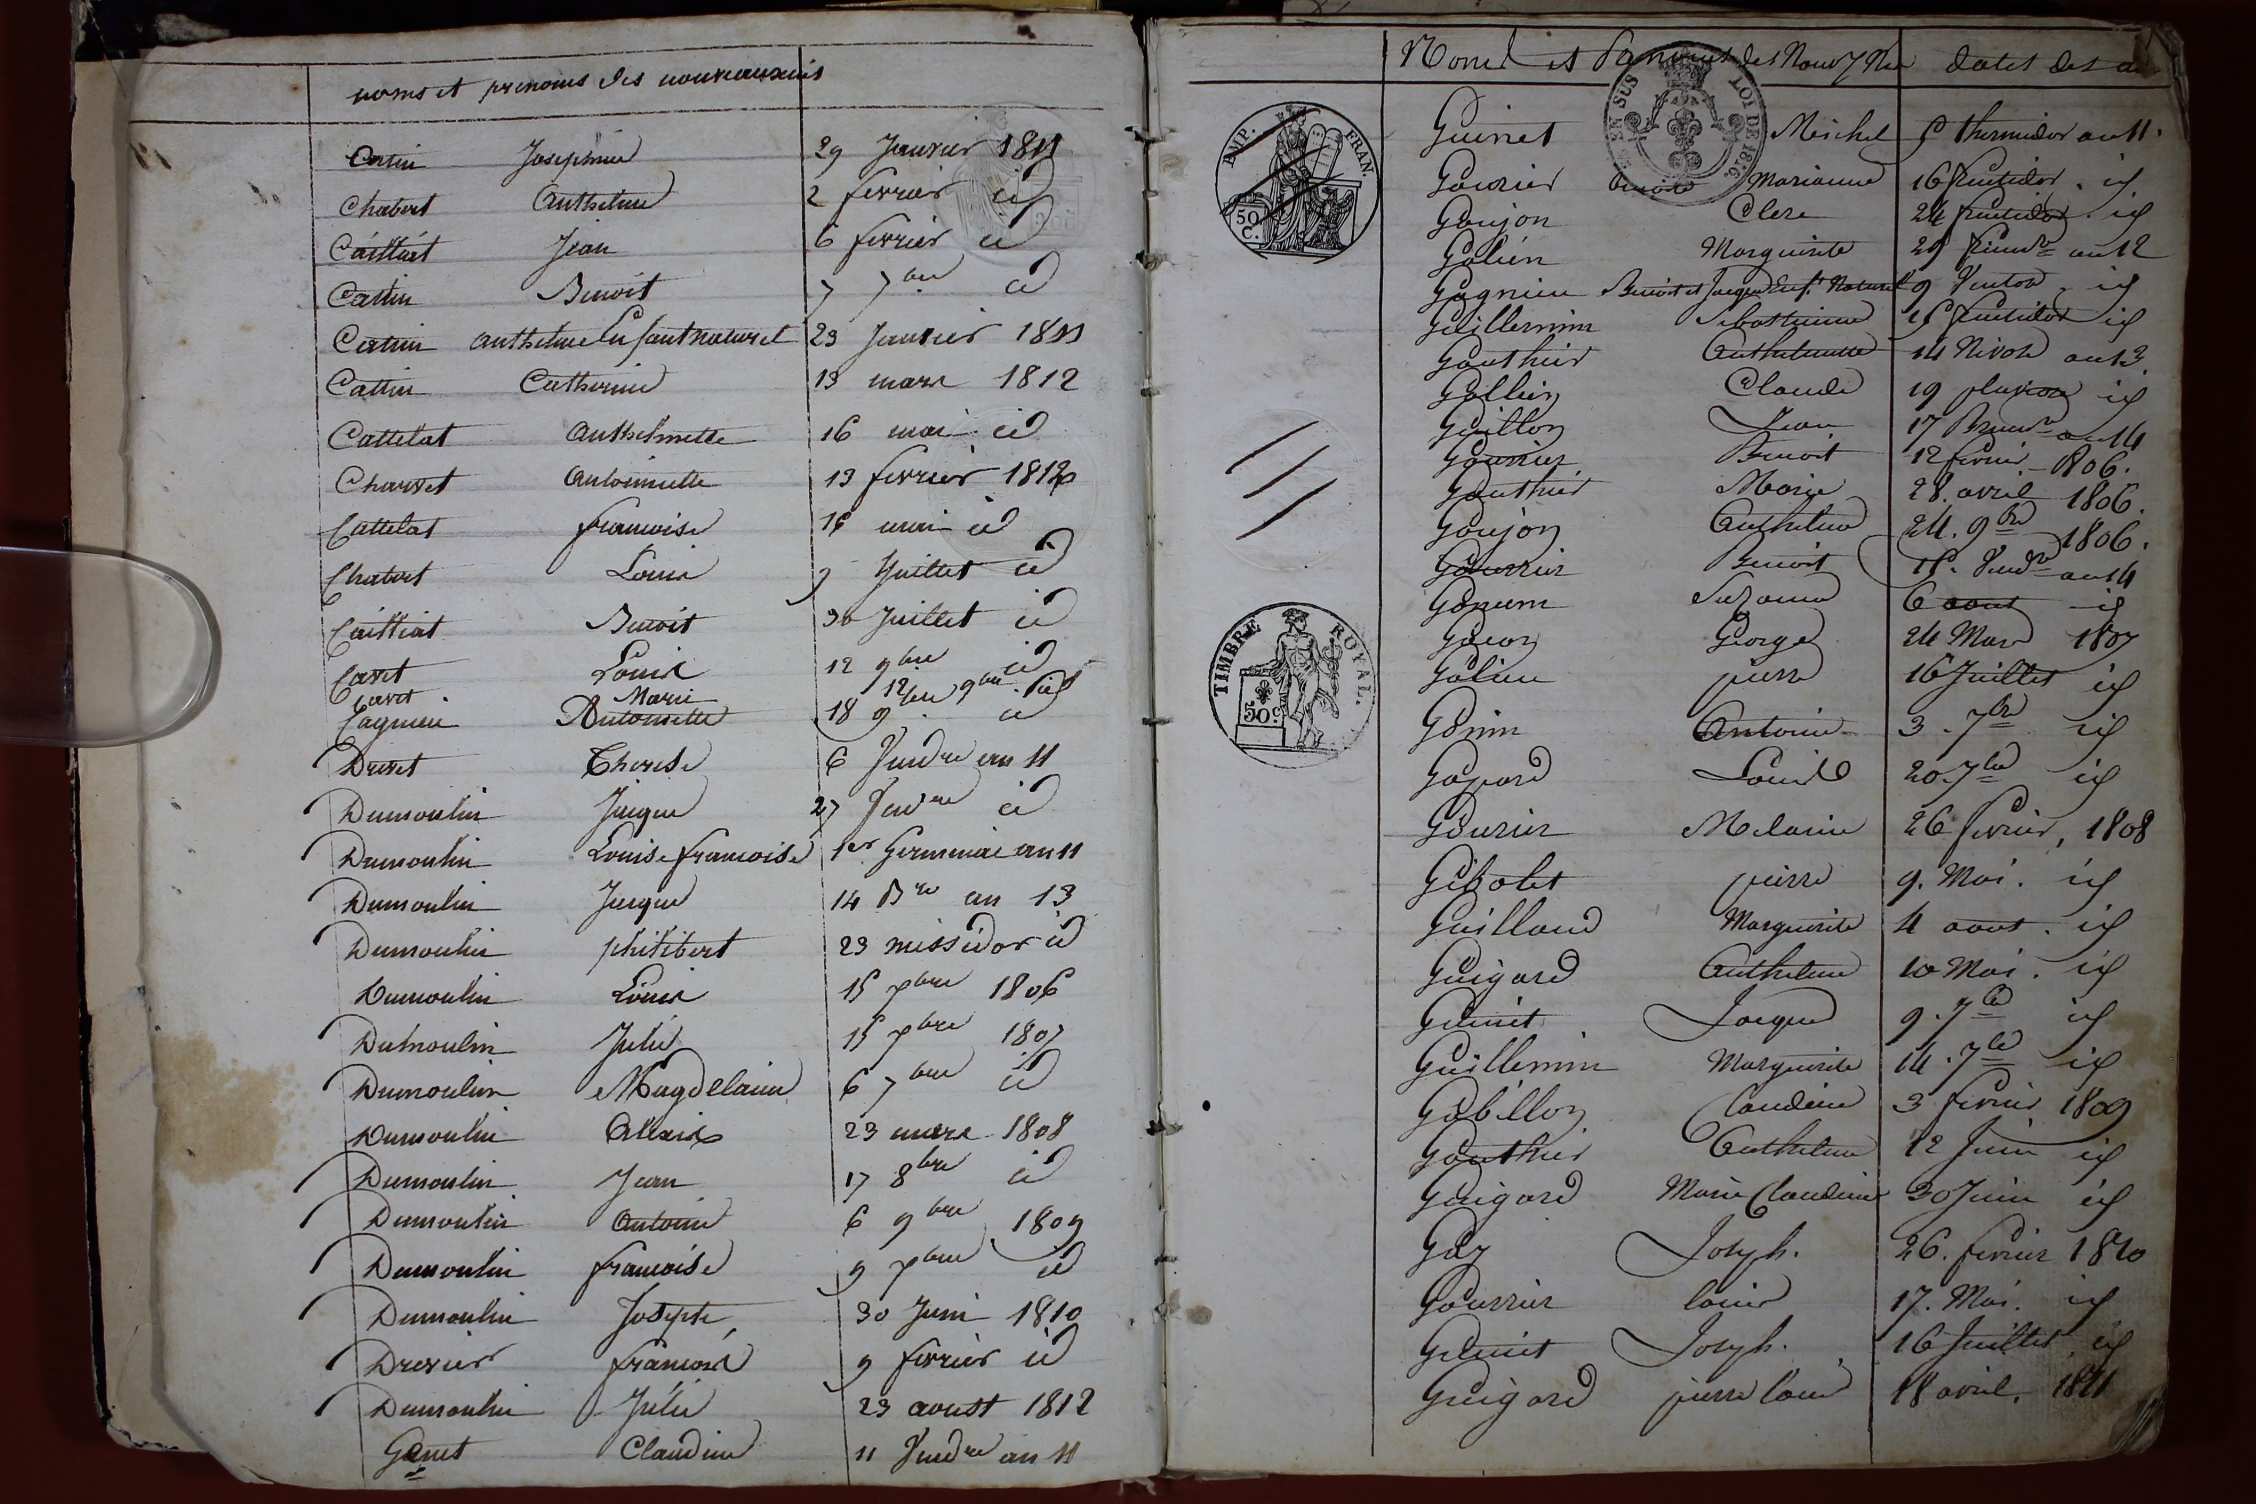 noms et prenoms des nouveauxnés
Cattin Josephine 29 Janvier 1811
Chabert Anthelme 2 fevrier id
Cattin Jean 6 fevrier id
Cattin Benoit 7 7bre id
Cattin Anthelme Enfant naturel 23 Janvier 1811
Cattin Catherine 13 mars 1812
Cattelat Anthelmette 16 mai id
Charvet Antoinette 13 fevrier 1812
Cattelat francoise 15 mai id
Chabert Louis 9 Juillet id
Benoit 30 Juillet id
Cavet Louis 12 9bre id
Cavet Marie 12 9bre id
Cagnieu Antoinette 18 9bre id
Drevet Therese 6 Vendre an 11
Dumoulin Jacque 27 Vendre id
Dumoulin Louise francoise 1er Germinal an 11
Dumoulin Jacque 14 Bre an 13
Dumoulin philibert 23 messidor id
Dumoulin Louis 15 xbre 1806
Dumoulin Julie 15 xbre 1807
Dumoulin Magdelaine 6 7bre id
Dumoulin Alexis 23 mars 1808
Dumoulin Jean 17 8bre id
Dumoulin Antoine 6 9bre 1809
Dumoulin francoise 9 xbre id
Dumoulin Josephe 30 Juin 1810
Drevier francois 9 fevrier id
Dumoulin Julie 23 aoust 1812
Genet Claudine 11 Vendre an 11
Noms et Prenoms des Nouvx Nés dates des
EN SUS LOI DE 1816
IMP. FRAN.
50 C.
Guinet Michel 5 thermidor an 11.
Gourier Marianne 16 fructidor. id
Goujon Clere 24 fructidor. id
Galien Marguerite 29 frimre an 12
Gagnieu Benoit et Jacque Enfs Naturel 9 Ventose. id
Guillermin Sebastienne 15 fructidor id
Gauthier Anthelmette 14 Nivose an 13.
Gallien Claude 19 pluviose id
Guillon Jean 17 Brumre an 14
Gourrier Benoit 12 fevrier 1806.
Gauthier Marie 28. avril 1806.
Goujon Anthelme 24. 9bre 1806.
Gourrier Benoit 15. Vendre an 14
Gonin Suzanne 6 aout id
George 24 Mars 1807
Galien pierre 16 Juillet id
Gonin Antoine 3. 7bre id
Gaspard Louis 20. 7bre id
Gourier Melanie 26 fevrier, 1808
Gibolet pierre 9. Mai. id
Guilland Marguerite 4 aout. id
Guigard Anthelme 10 Mai. id
Guinet Jacque 9. 7bre id
Guillermin Marguerite 14. 7bre id
Gabillon Claudine 3 fevrier 1809
Gauthier Anthelme 12 Juin id
Guigard Marie Claudine 30 Juin id
Guy Joseph. 26. fevrier 1810
Gourrier louis 17. Mai. id
Guinet Joseph. 16 Juillet id
Guigard pierre louis 18 avril. 1811
TIMBRE ROYAL.
50 c.